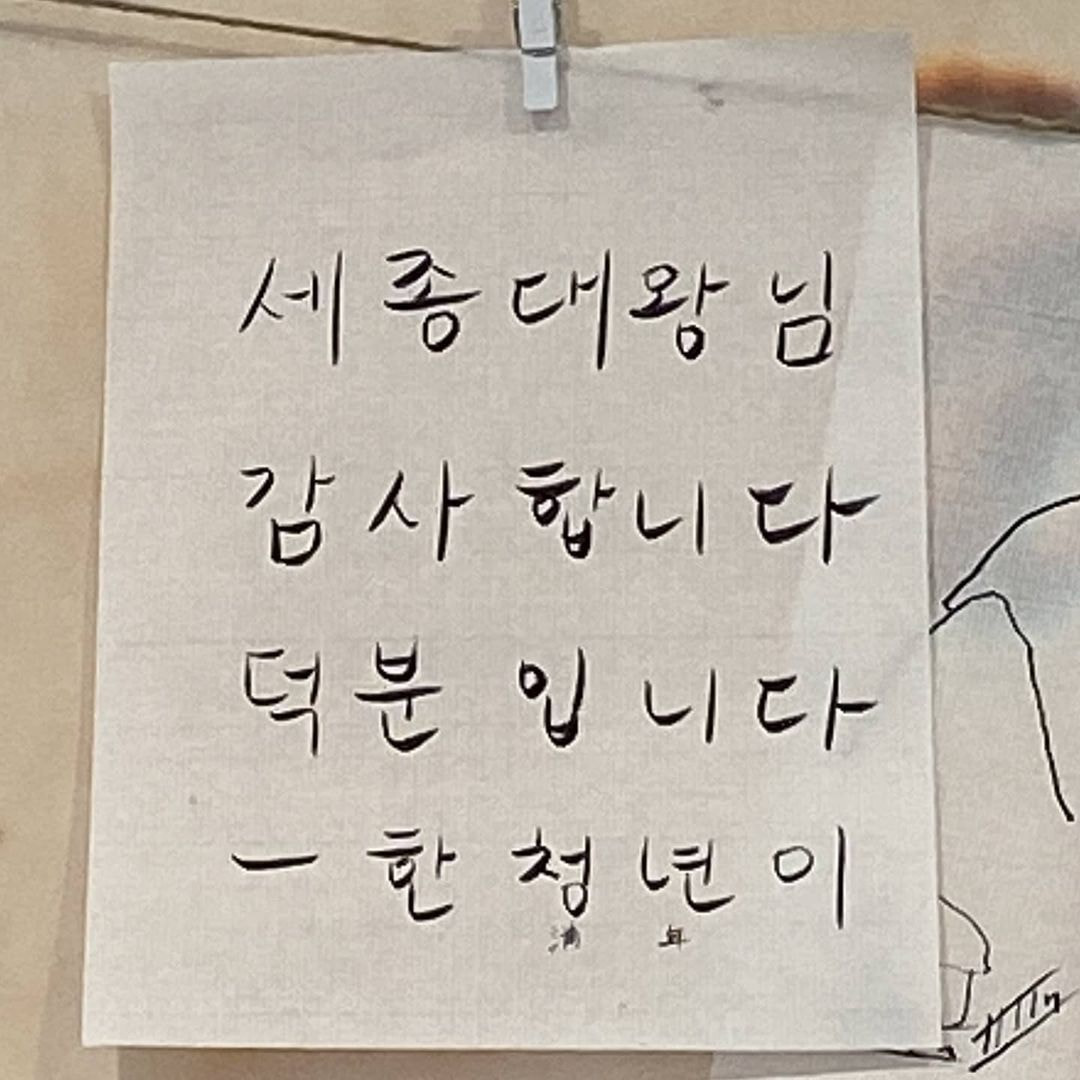 세종대왕님
감사합니다
덕분입니다
一한청년이
年